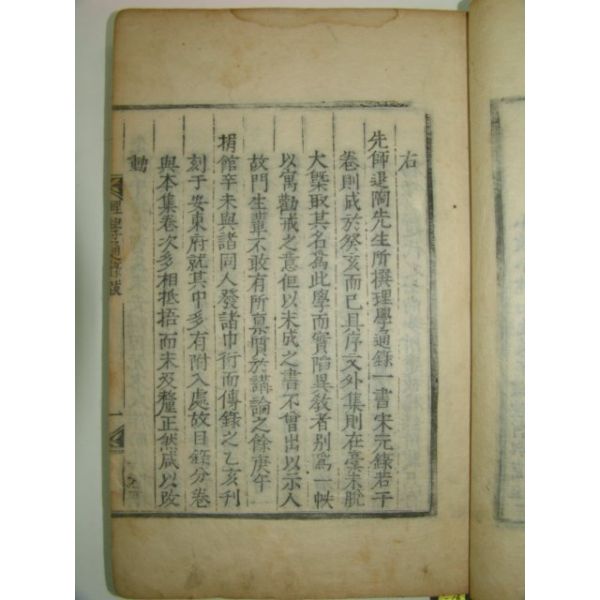 右
先師退陶先生所撰理學通錄一書宋元錄若干
卷則成於癸亥而已具序文外集則在藁未脫
大槩取其名爲此學而實陷異敎者別爲一帙
以寓勸戒之意但以未成之書不曾出以示人
故門生輩不敢有所稟質於講論之餘庚午
捐館辛未與諸同人發諸巾衍而傳錄之乙亥刊
刻于安東府就其中多有附入處故目錄分卷
與本集卷次多相抵捂而未及釐正然咸以改
動
理學通錄跋
一